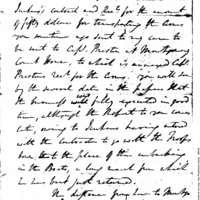 Jenkins's order and Rec't for the amount
of fifty dollars for transporting the Arms
you sometime ago sent to my care to
be sent to Capt. Preston at Montgomery
Court House, to which is annexed Capt
Preston's rec't for the Arms, you will see
by the several dates in the papers that
the business was fully executed in good
time, although the Report to you comes
late, owing to Jenkins having entered
with the contractor to go with the Troops
from to the place of their embarking
in the Boats, a long march from which
he has but just returned.
The distance from here to Montgy